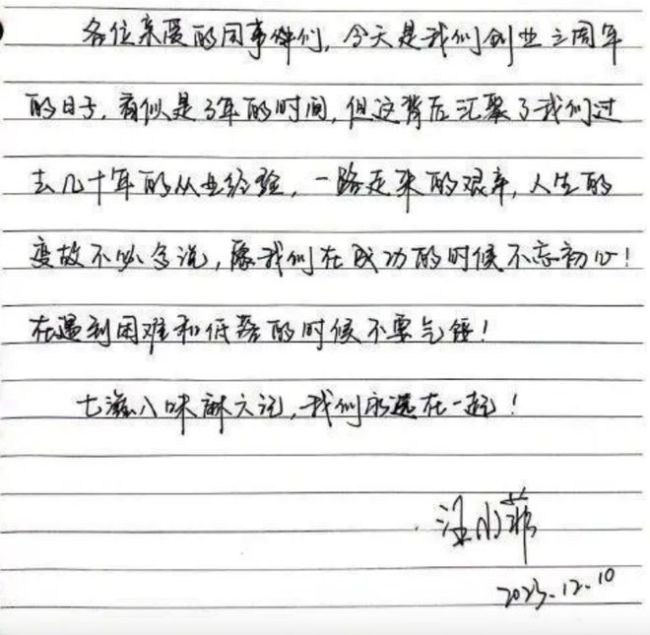 各位亲爱的同事伙伴们，今天是我们创业三周年
的日子，看似是3年的时间，但这背后汇聚了我们过
去几十年的从业经验，一路走来的艰辛，人生的
变故不必多说，愿我们在成功的时候不忘初心！
在遇到困难和低落的时候不要气馁！
七滋八味麻六记，我们永远在一起！
汪小菲
2023.12.10